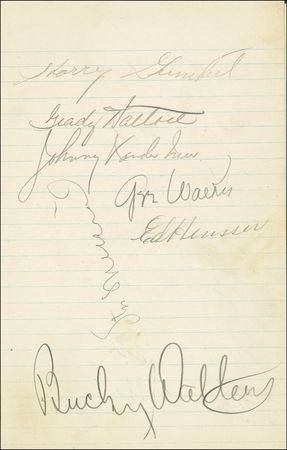 Harry Gumbert
Grady Hatton
Johnny Vander Meer
Gee Walker
Ed Heusser
Bucky Walters